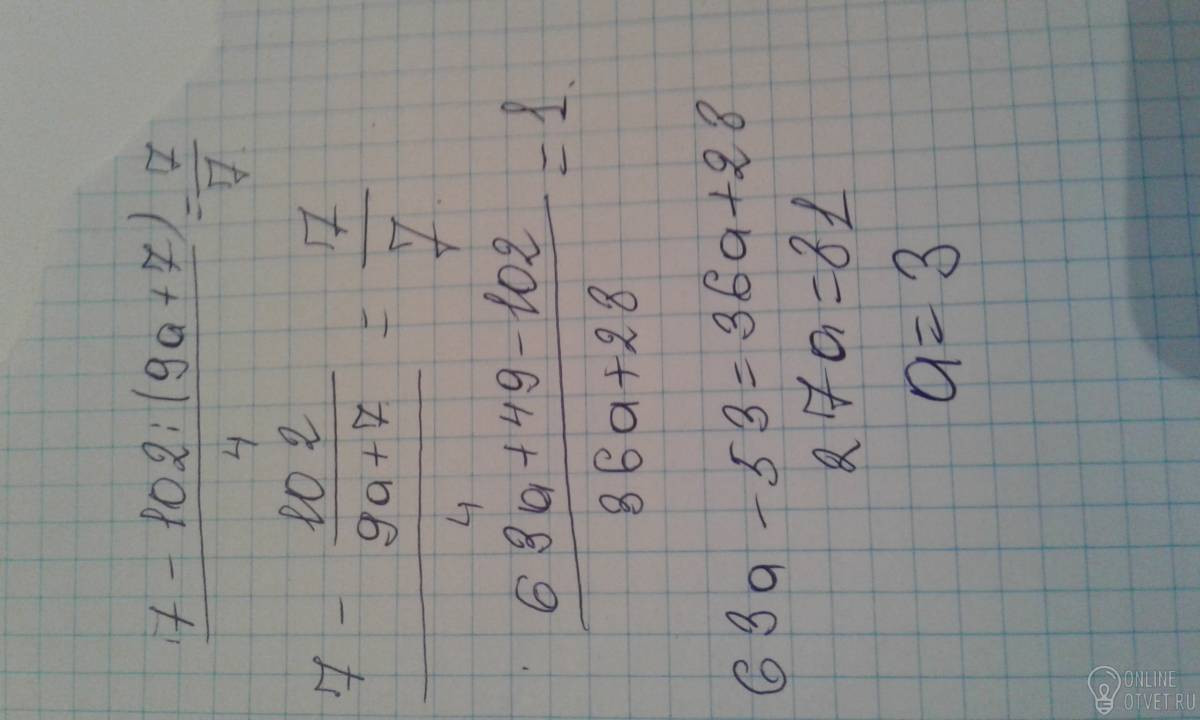 7 - 102 : (9a + 7) / 4 = 7/7
(7 - 102/(9a + 7)) / 4 = 7/7
63a + 49 - 102 / 36a + 28 = 1
63a - 53 = 36a + 28
27a = 81
a = 3
ONLINE
OTVET.RU